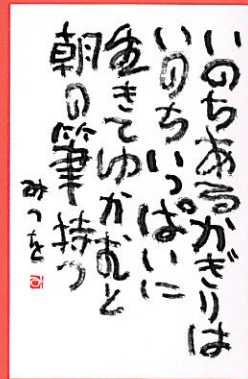 いのちあるかぎりは
いのちいっぱいに
生きてゆかむと
朝の筆持つ
みつを